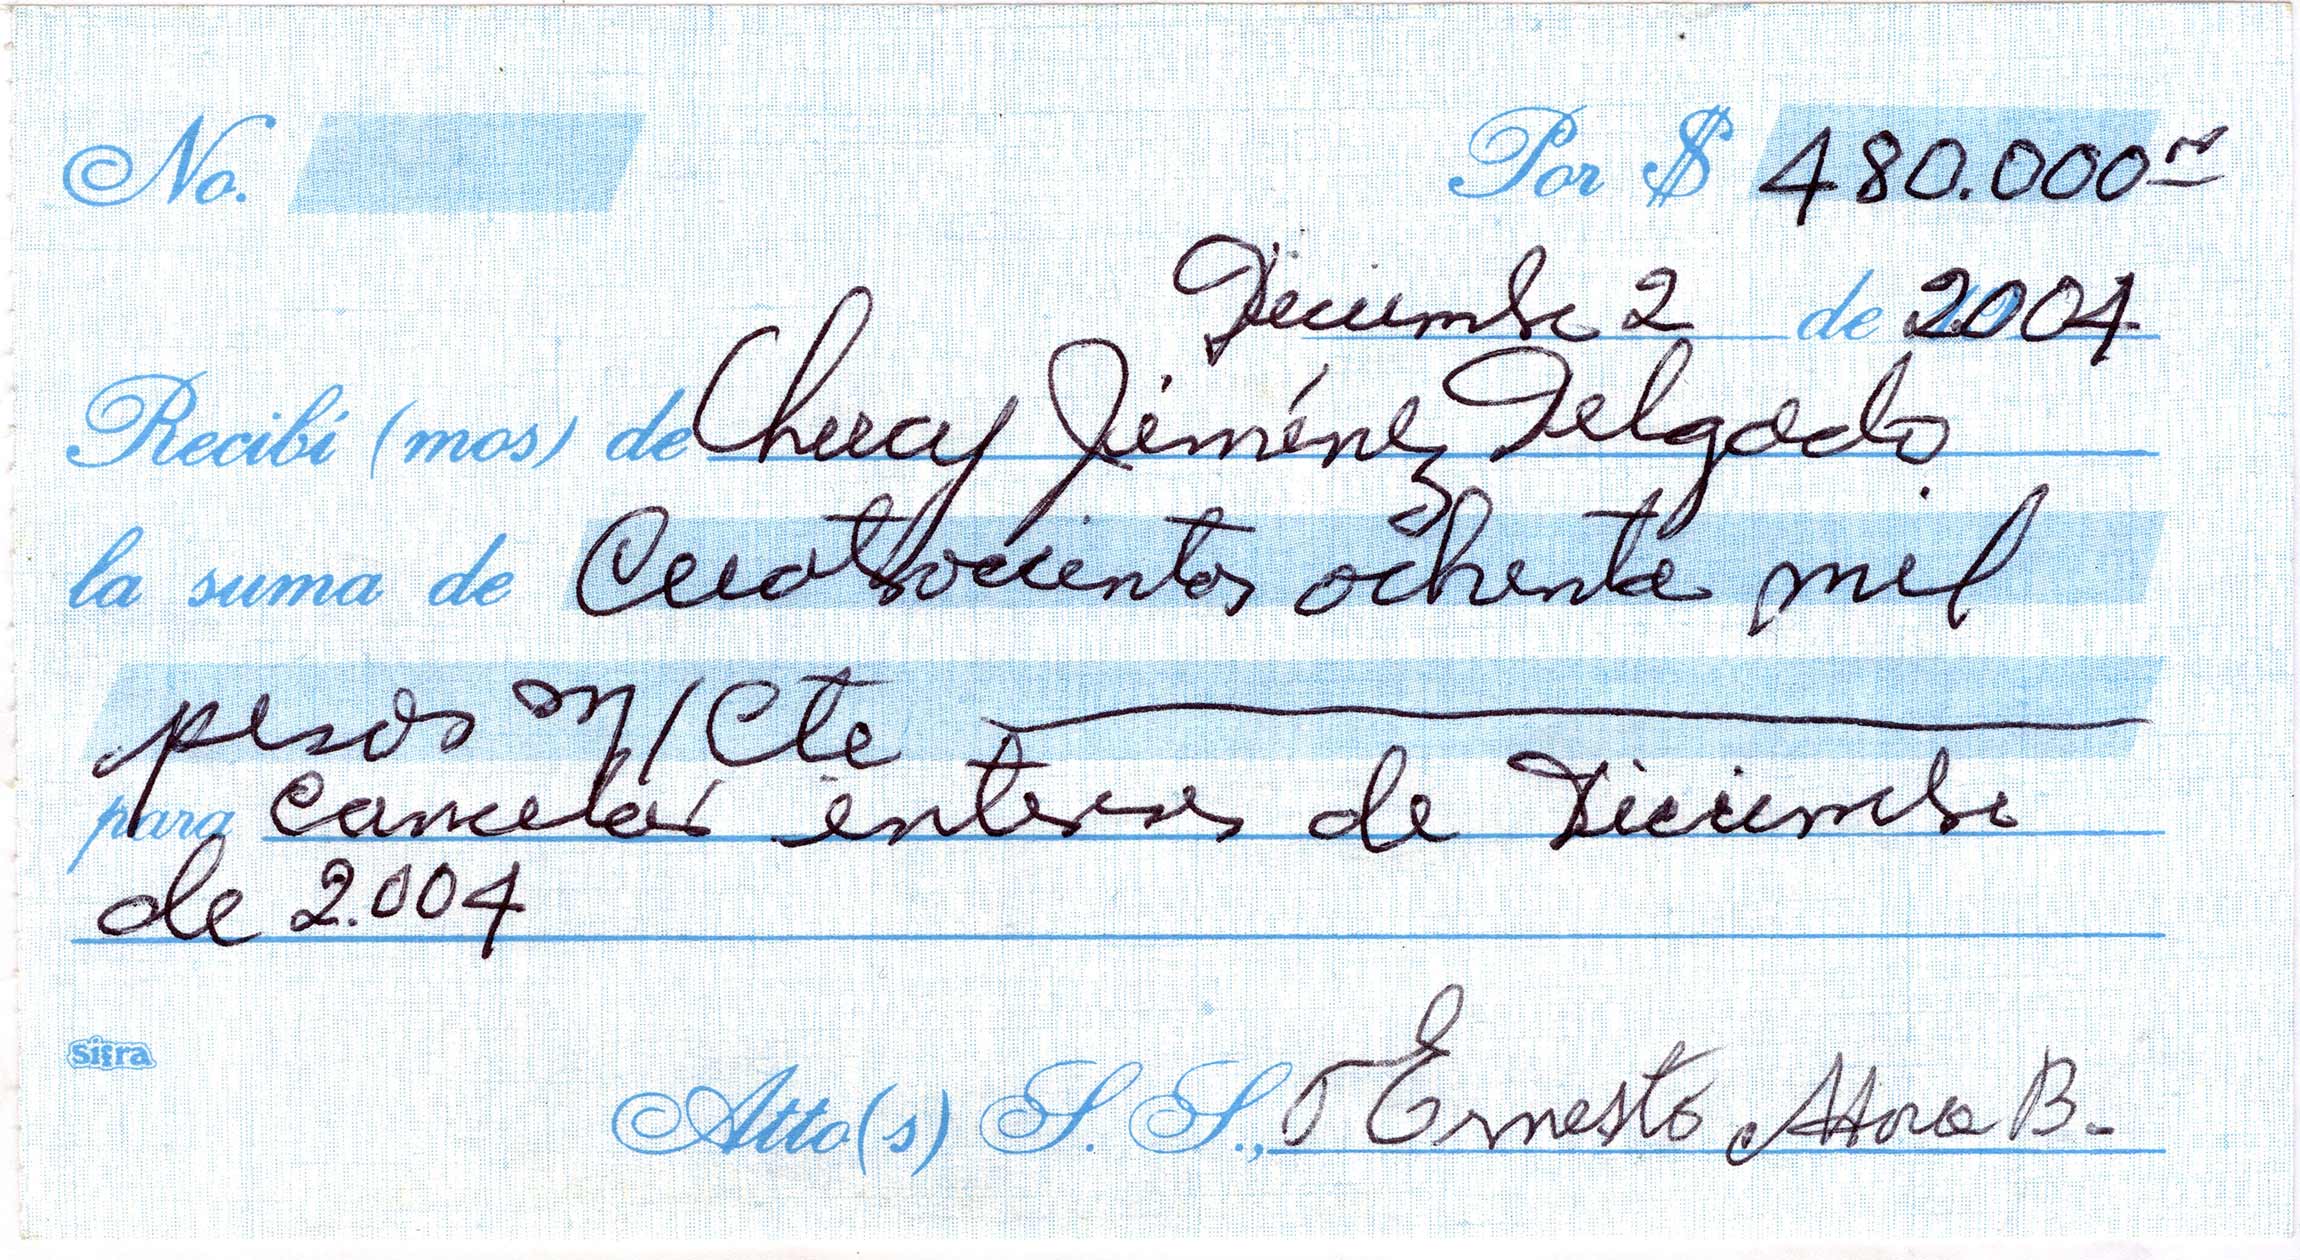 No. Por $ 480.000
Diciembre 2 de 2.004
Recibí (mos) de Jiménez Delgado
la suma de Cuatrocientos ochenta mil
pesos M/Cte
para cancelar intereses de Diciembre
de 2.004
Sifra
Atto(s) S. S., Ernesto B.